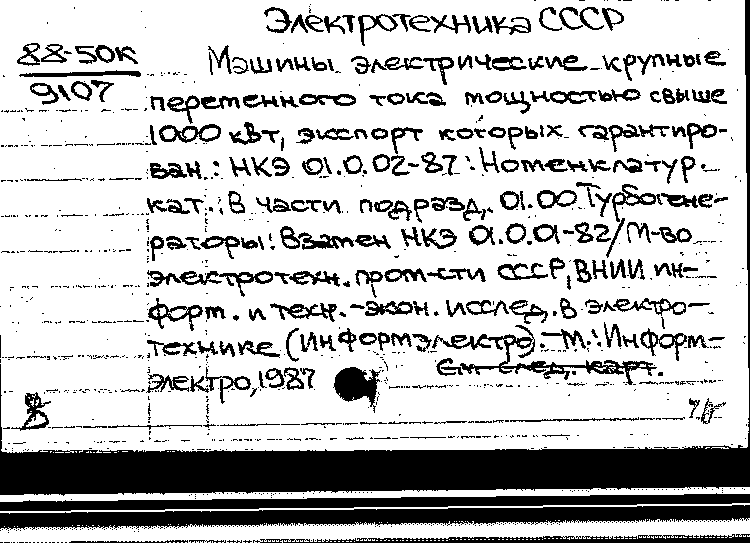 Электротехника СССР
88-50К
9107
Машины электрические крупные
переменного тока мощностью свыше
1000 кВт, экспорт которых гарантиро-
ван.: НКЭ 01.0.02-87: Номенклатур.
кат.: В части подразд. 01.00 Турбогене-
раторы: Взамен НКЭ 01.0.01-82/М-во
электротехн. пром-сти СССР, ВНИИ ин-
форм. и техн.-экон. исслед. в электро-
технике (Информэлектро).-М.: Информ-
электро, 1987
См. след. карт.